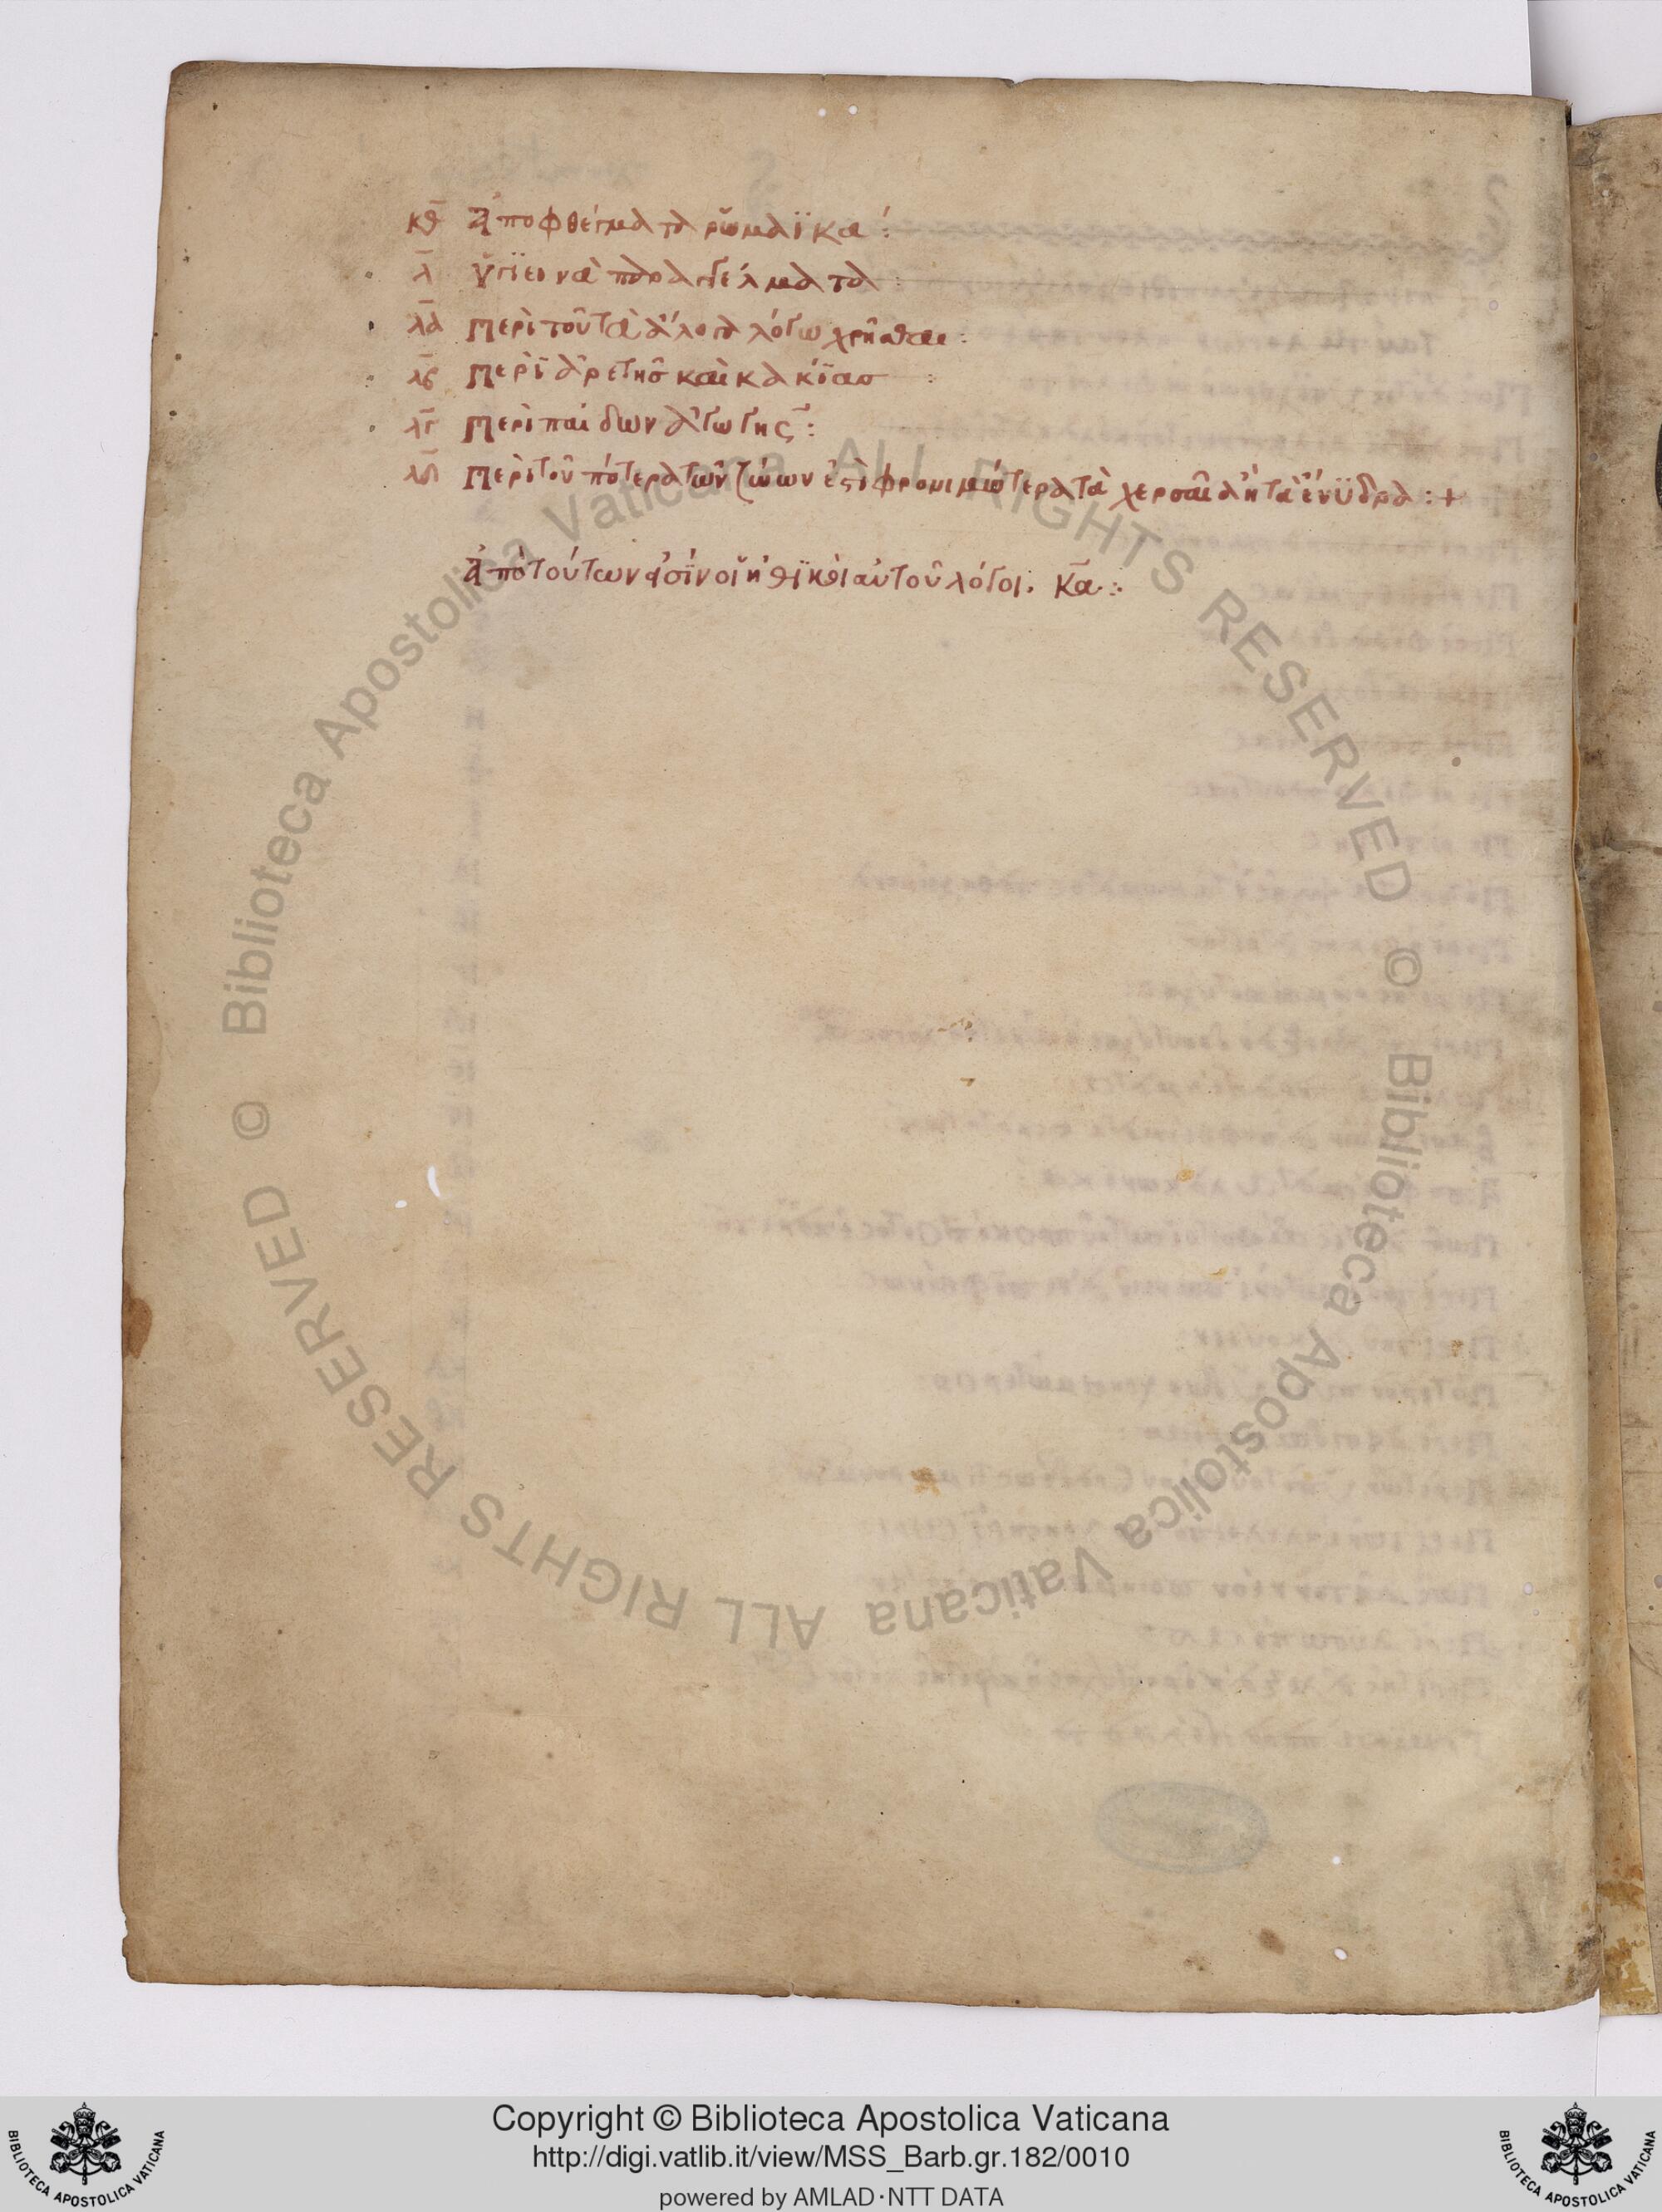 κθ Ἀποφθέγματα ρωμαϊκά:
λ Ὑγϊεινὰ παραγγέλματα:
λα Περὶ τοῦ τὰ ἄλογα λόγω χρῆσθαι:
λβ Περὶ ἀρετῆσ καὶ κακίασ:
λγ Περὶ παίδων ἀγωγῆς:
λδ Περὶ τοῦ πότερα τῶν ζώων ἐστὶ φρονιμώτερα τὰ χερσαῖα ἢ τὰ ἔνϋδρα:+
Ἀπὸ τούτων εἰσϊν οἱ ἠθϊκοὶ αὐτοῦ λόγοι. κα:
© Biblioteca Apostolica Vaticana ALL RIGHTS RESERVED © Biblioteca Apostolica Vaticana ALL RIGHTS RESERVED
Copyright © Biblioteca Apostolica Vaticana
http://digi.vatlib.it/view/MSS_Barb.gr.182/0010
powered by AMLAD·NTT DATA
BIBLIOTECA APOSTOLICA VATICANA
BIBLIOTECA APOSTOLICA VATICANA